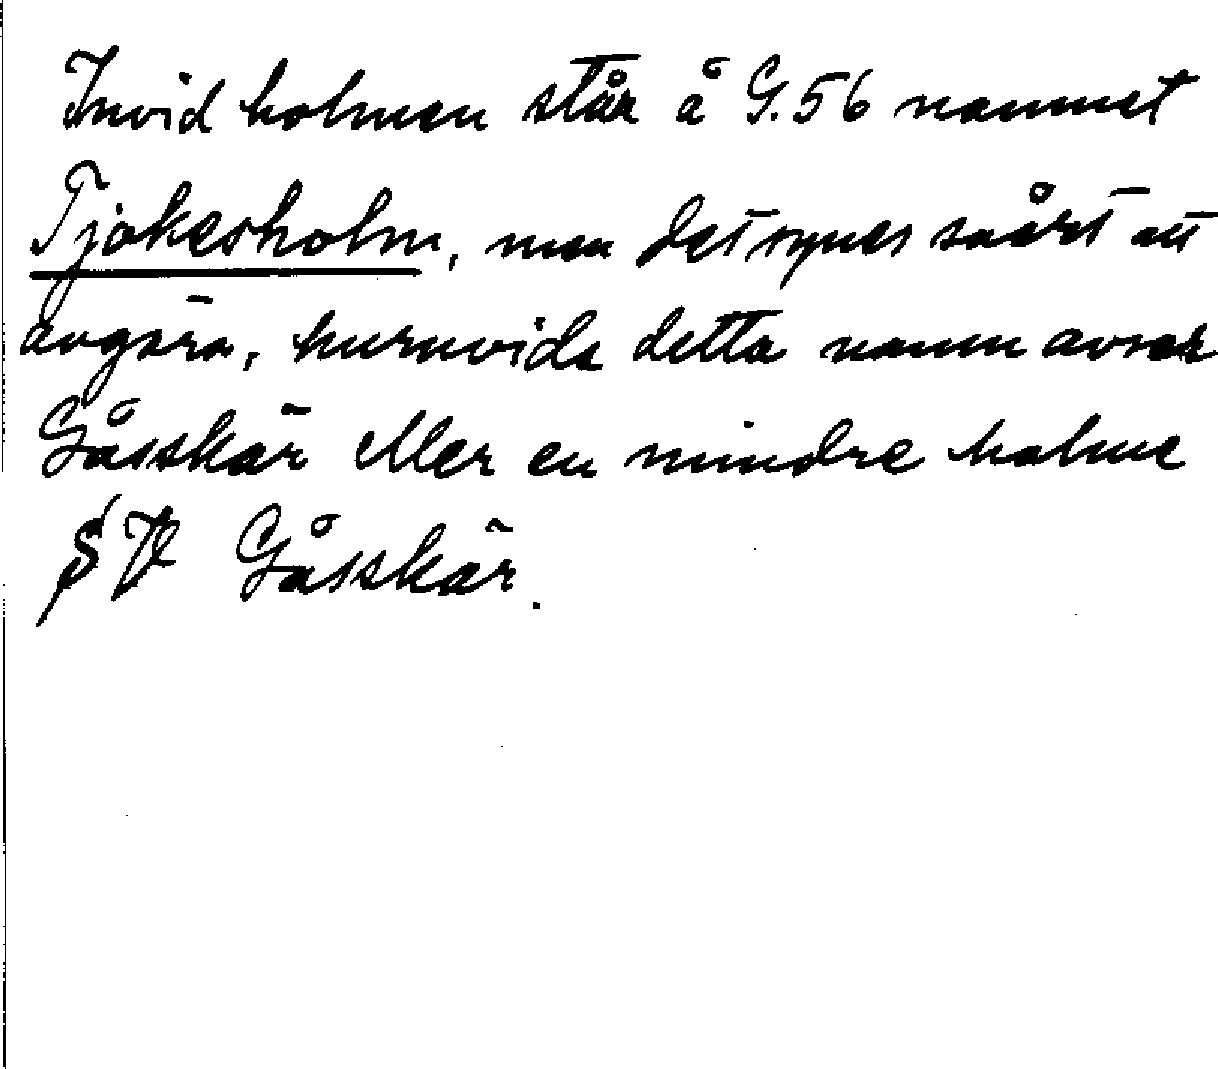 Invid holmen står å G.56 namnet
Tjokesholm, men det synes svårt att
avgöra, huruvida detta namn avser
Gåsskär eller en mindre holme
SV Gåsskär.